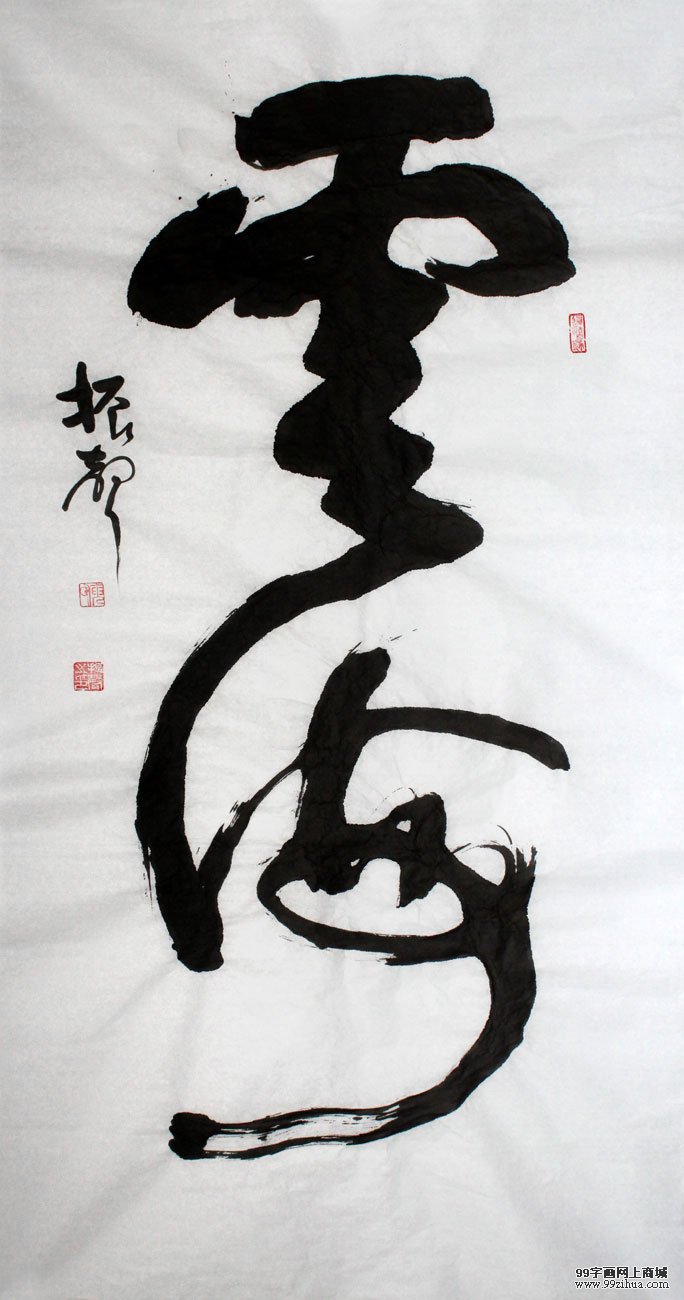 雲海
振聲
99字画网上商城
www.99zihua.com